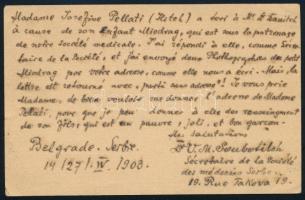 Madame Josefine Pellati (Hôtel) a écri à Mr. D
à cause de son Enfant Miodrag, qui est sous la patronage
de notre Société médicale. J'ai répondi à elle, comme Secré-
taire de la Société, et j'ai envoyé deux Photographies du petit
Miodrag par votre adresse, comme elle nous a écri. Mais la
lettre est retourné avec, parti sans adresse! Je vous prie
Madame, de bien vouloir me donner l'adresse de Madame
Pellati, pour que je peu donner à elle des renseignement
de son fils, qui est un pauvre, joli, et bon garçon.
Mes salutations
Belgrade. Serbie. Dr V. M. Soubotitch
14/27/. IV. /1903. Sécrétaire de la Société
des médecins Serbes
19. Rue Takova 19.